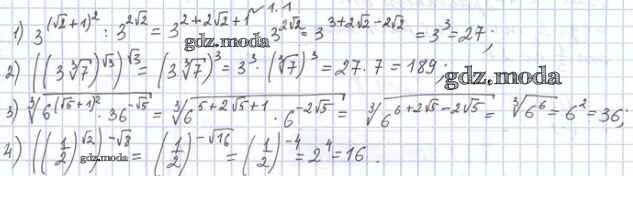 √ 1.1
1) 3^(√2+1)² : 3^2√2 = 3^2+2√2+1 : 3^2√2 = 3^3+2√2-2√2 = 3³ = 27;
gdz.moda
2) ((3∛7)^√3)^√3 = (3∛7)³ = 3³ · (∛7)³ = 27 · 7 = 189;
gdz.moda
3) ∛6^(√5+1)² · 36^-√5 = ∛6^5+2√5+1 · 6^-2√5 = ∛6^6+2√5-2√5 = ∛6⁶ = 6² = 36;
4) ((1/2)^√2)^-√8 = (1/2)^-√16 = (1/2)^-4 = 2⁴ = 16.
gdz.moda